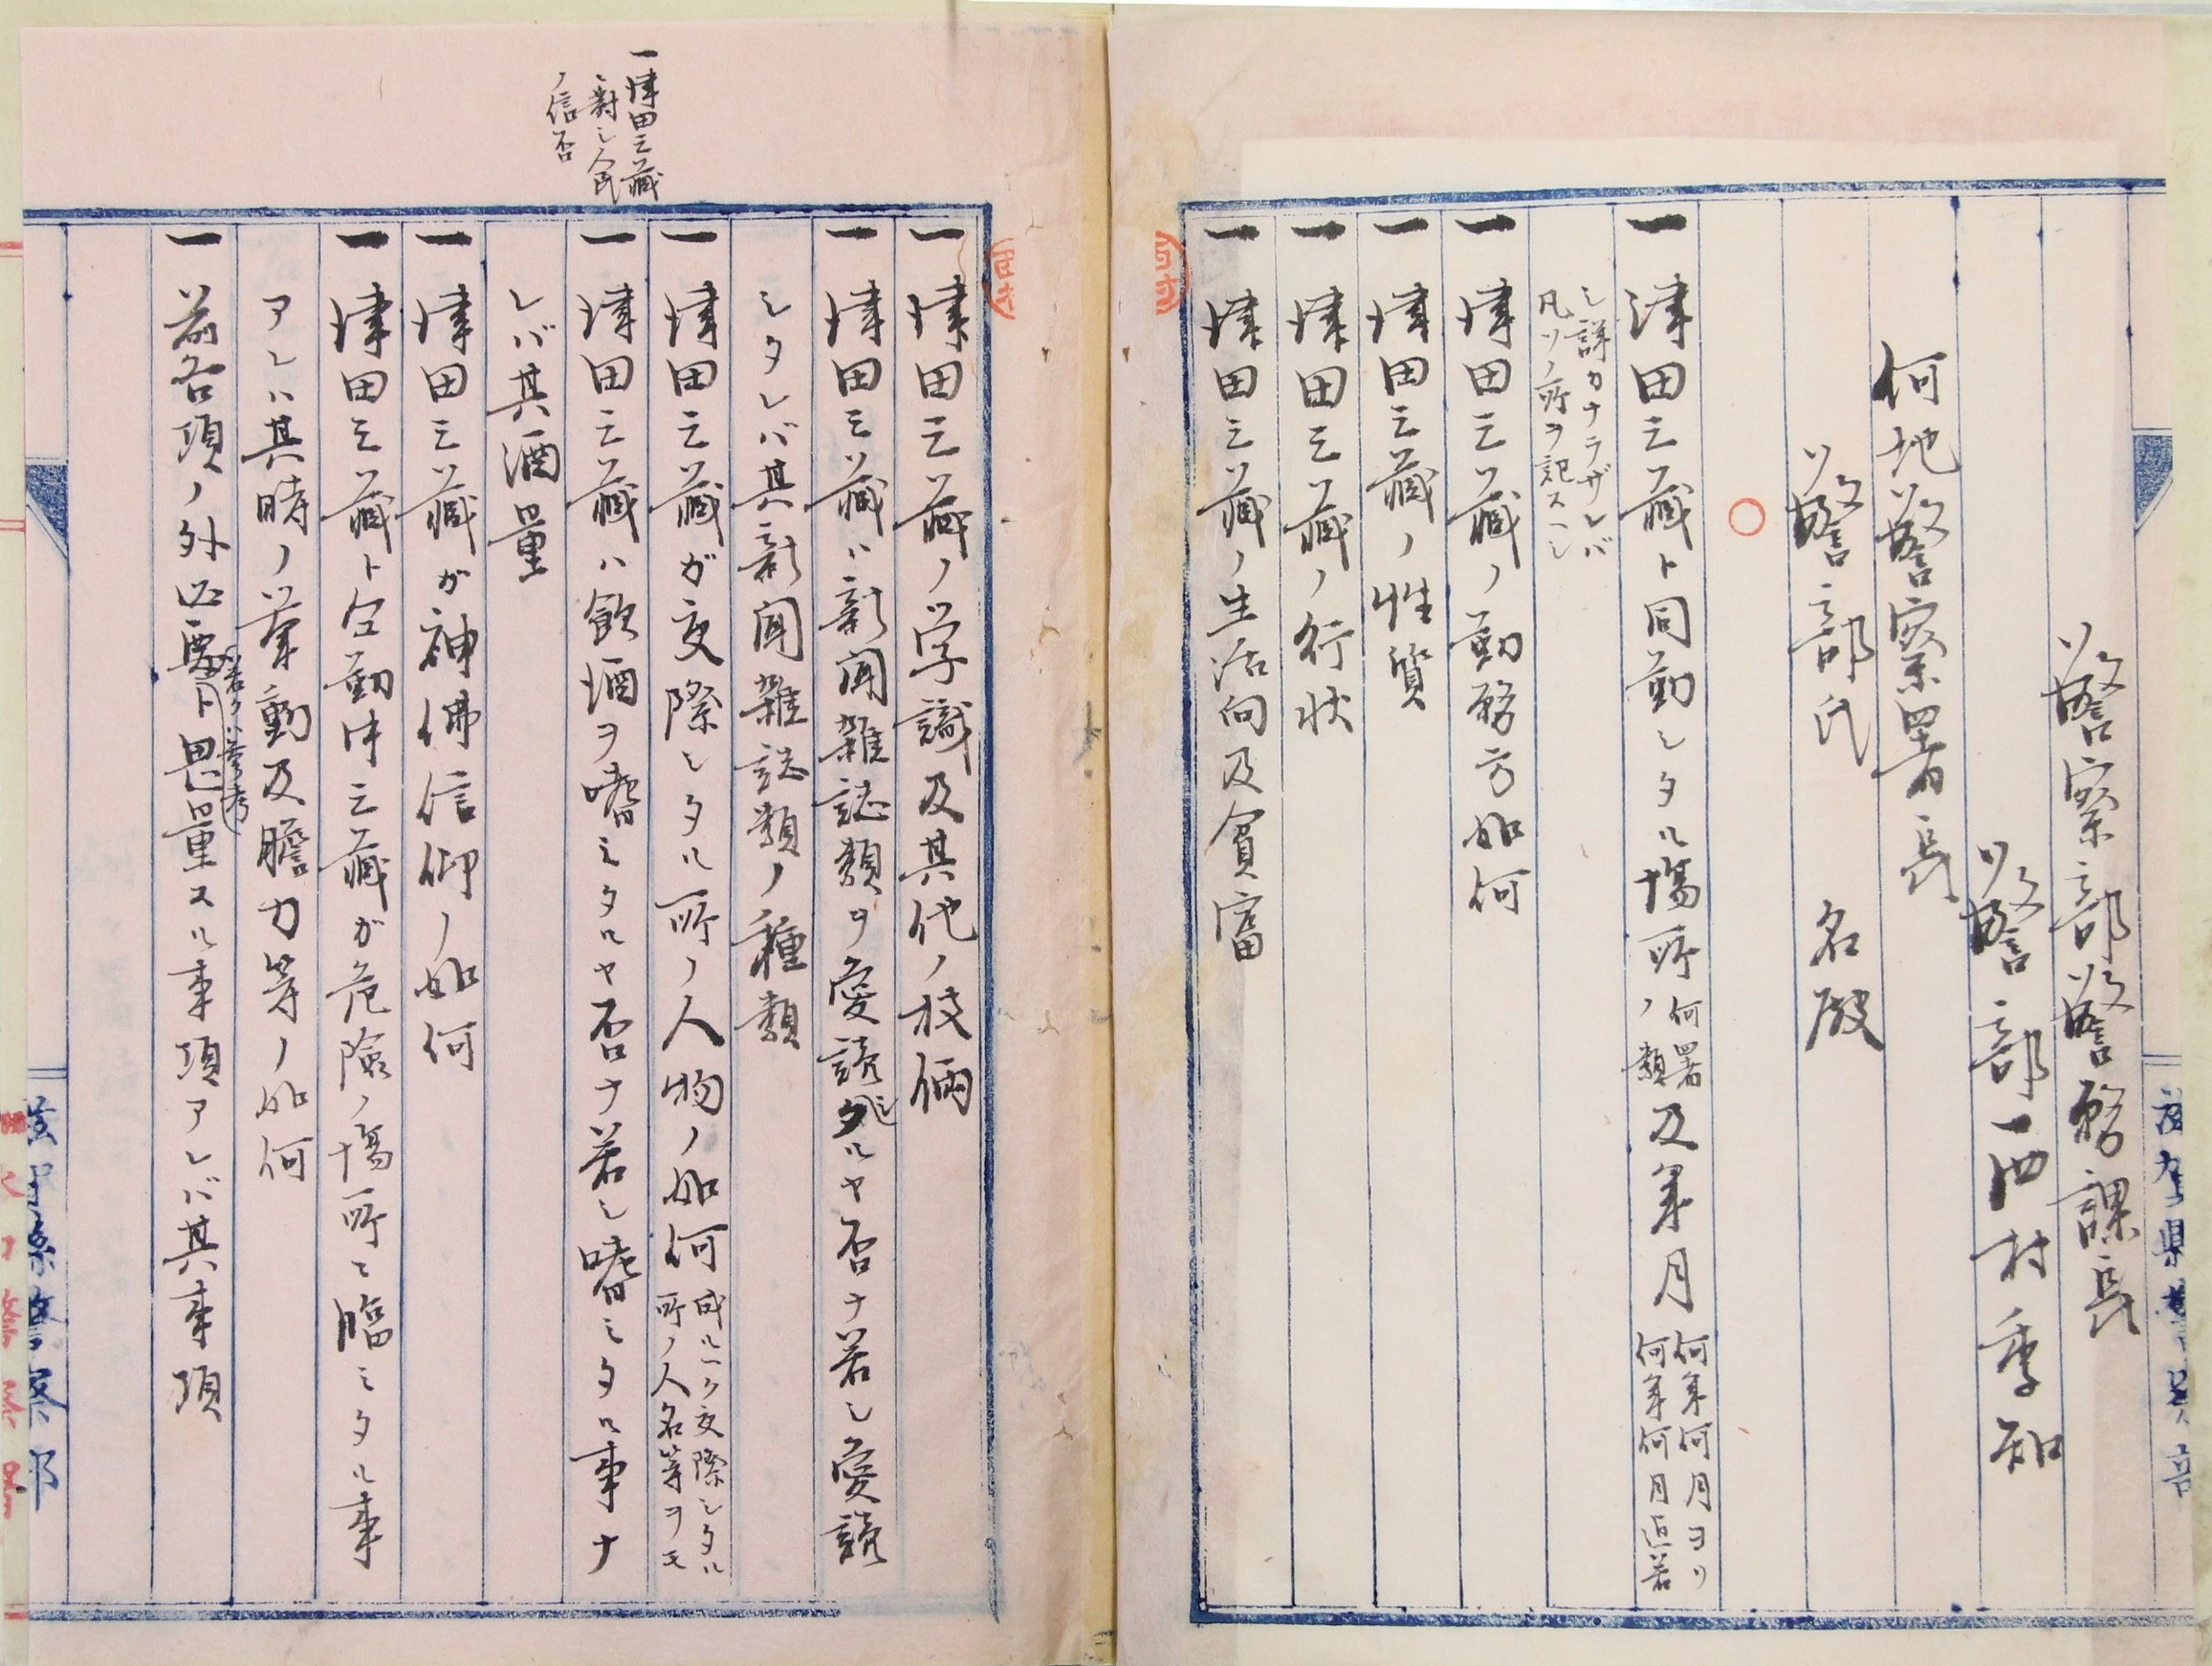 警察部警務課長
警部一四村季知
何地警察署長
警部氏　名殿
一津田三蔵ト同勤シタル場所何署ノ類及年月何年何月ヨリ何年何月迄若
シ詳カナラザレバ凡ソノ所ヲ記スヘシ
一津田三蔵ノ勤務方如何
一津田三蔵ノ性質
一津田三蔵ノ行状
一津田三蔵ノ生活向及貧富
滋賀県警察部
一津田三蔵ニ対シ人民ノ信否
一津田三蔵ノ学識及其他ノ技倆
一津田三蔵ハ新聞雑誌類ヲ愛読シタルヤ否ナ若シ愛読
シタレバ其新聞雑誌類ノ種類
一津田三蔵ガ交際シタル所ノ人物ノ如何成ルヘク交際シタル所ノ人名等ヲモ
一津田三蔵ハ飲酒ヲ嗜ミタルヤ否ナ若シ嗜ミタル事ナ
レバ其酒量
一津田三蔵ガ神佛信仰ノ如何
一津田三蔵ト仝勤中三蔵ガ危険ノ場所ニ臨ミタル事
アレハ其時ノ挙動及膽力等ノ如何
一前各項ノ外必要若クハ参考ト思量スル事項アレバ其事項
滋賀県警察部